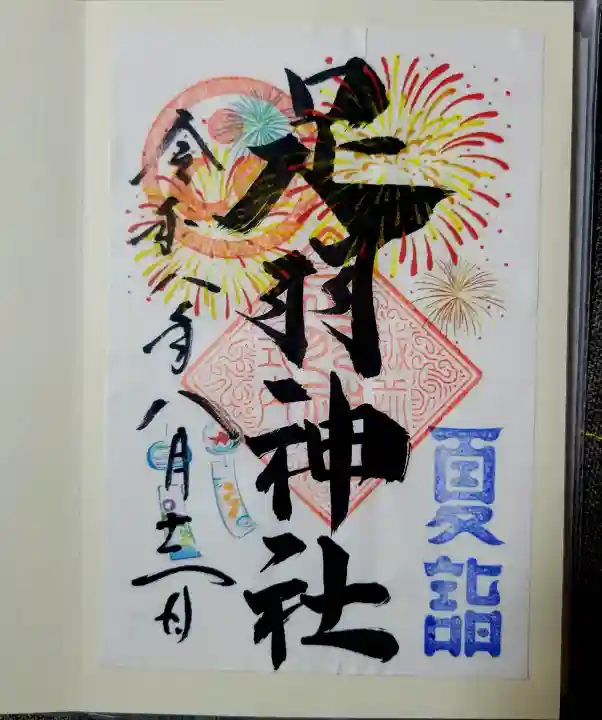 夏詣
足羽神社
令和八年八月十六日